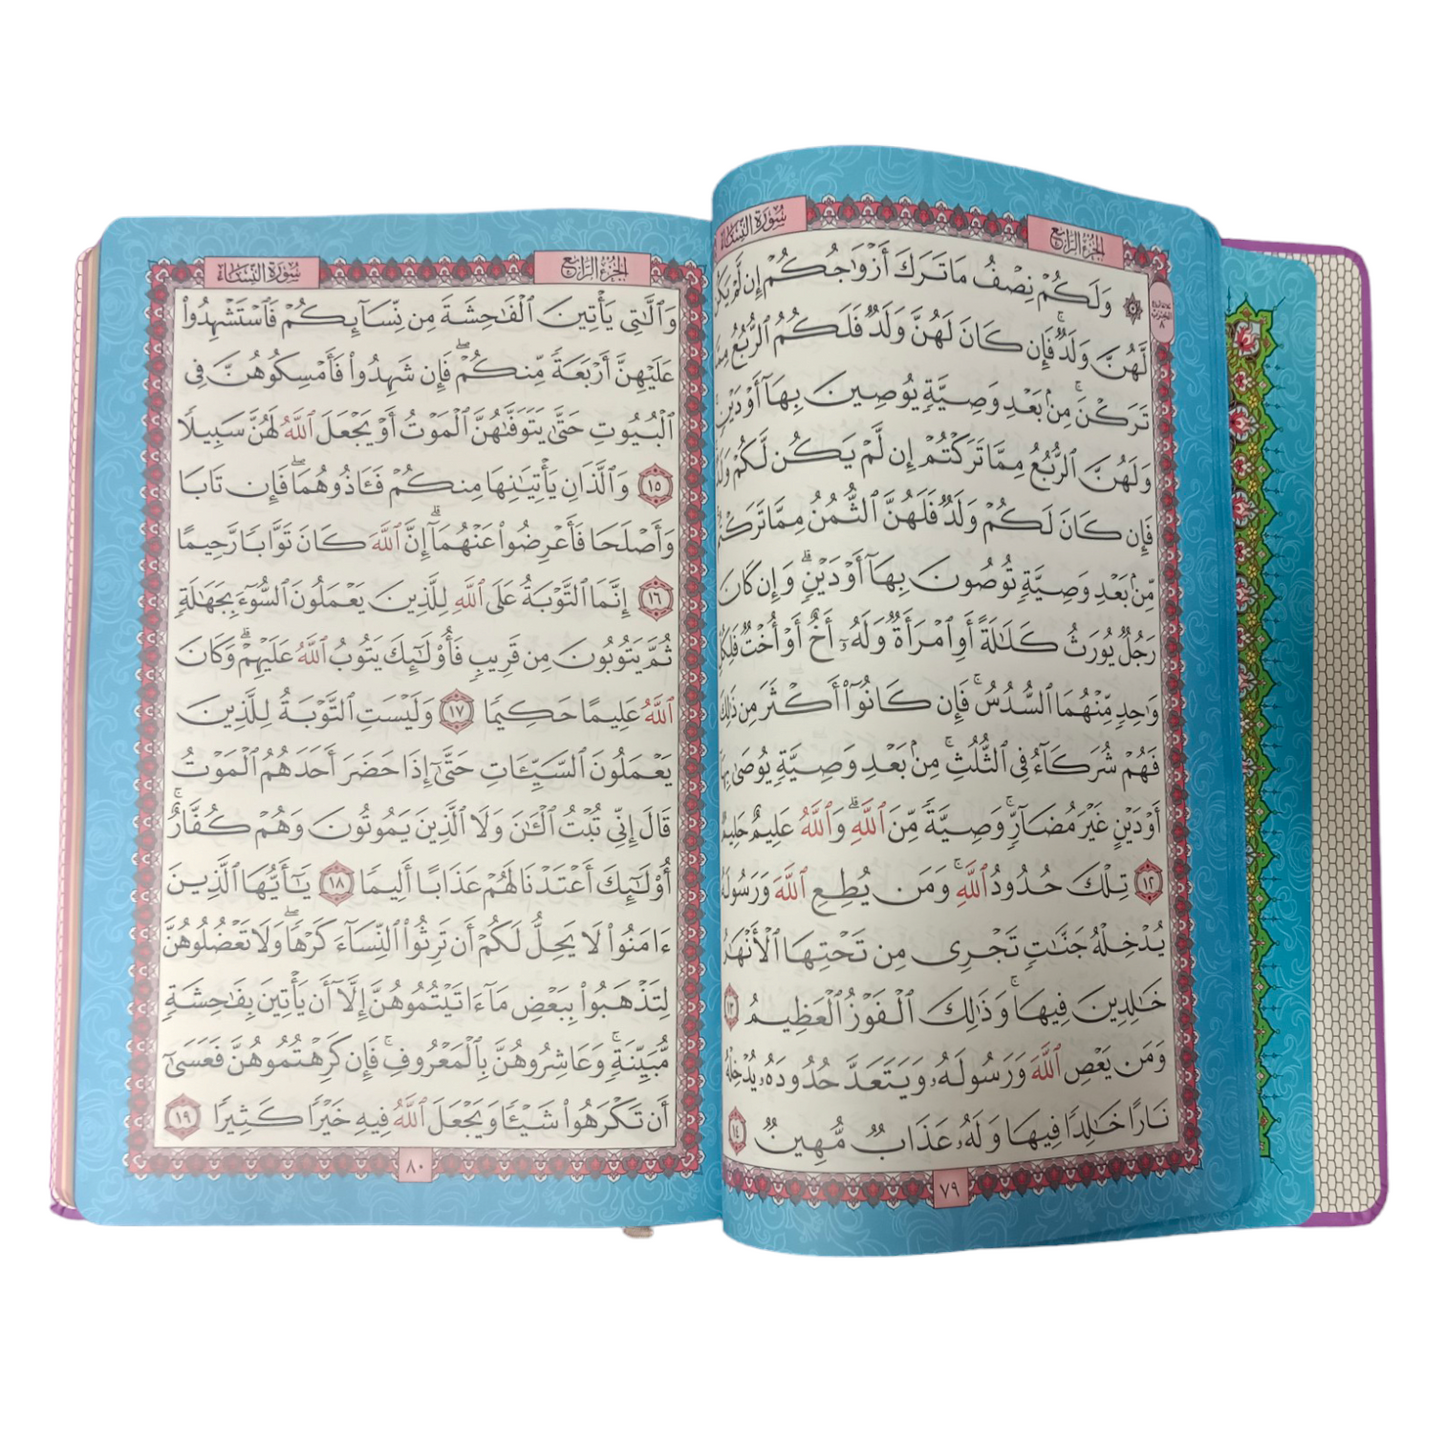 الجزء الرابع
سورة النساء
۞ وَلَكُمْ نِصْفُ مَا تَرَكَ أَزْوَٰجُكُمْ إِن لَّمْ يَكُن
لَّهُنَّ وَلَدٌ ۚ فَإِن كَانَ لَهُنَّ وَلَدٌ فَلَكُمُ ٱلرُّبُعُ
تَرَكْنَ ۚ مِنۢ بَعْدِ وَصِيَّةٍ يُوصِينَ بِهَآ أَوْ دَيْنٍ ۚ
وَلَهُنَّ ٱلرُّبُعُ مِمَّا تَرَكْتُمْ إِن لَّمْ يَكُن لَّكُمْ
فَإِن كَانَ لَكُمْ وَلَدٌ فَلَهُنَّ ٱلثُّمُنُ مِمَّا تَرَكْتُم
مِّنۢ بَعْدِ وَصِيَّةٍ تُوصُونَ بِهَآ أَوْ دَيْنٍ ۗ وَإِن كَانَ
رَجُلٌ يُورَثُ كَلَٰلَةً أَوِ ٱمْرَأَةٌ وَلَهُۥٓ أَخٌ أَوْ أُخْتٌ
وَٰحِدٍ مِّنْهُمَا ٱلسُّدُسُ ۚ فَإِن كَانُوٓا۟ أَكْثَرَ مِن ذَٰلِكَ
فَهُمْ شُرَكَآءُ فِى ٱلثُّلُثِ ۚ مِنۢ بَعْدِ وَصِيَّةٍ يُوصَىٰ
أَوْ دَيْنٍ غَيْرَ مُضَآرٍّ ۚ وَصِيَّةً مِّنَ ٱللَّهِ ۗ وَٱللَّهُ عَلِيمٌ حَلِيمٌ
١٣ تِلْكَ حُدُودُ ٱللَّهِ ۚ وَمَن يُطِعِ ٱللَّهَ وَرَسُولَهُ
يُدْخِلْهُ جَنَّٰتٍ تَجْرِى مِن تَحْتِهَا ٱلْأَنْهَٰرُ
خَٰلِدِينَ فِيهَا ۚ وَذَٰلِكَ ٱلْفَوْزُ ٱلْعَظِيمُ ١٣
وَمَن يَعْصِ ٱللَّهَ وَرَسُولَهُۥ وَيَتَعَدَّ حُدُودَهُۥ يُدْخِلْهُ
نَارًا خَٰلِدًا فِيهَا وَلَهُۥ عَذَابٌ مُّهِينٌ ١٤
٧٩
الجزء الرابع
سورة النساء
وَٱلَّٰتِى يَأْتِينَ ٱلْفَٰحِشَةَ مِن نِّسَآئِكُمْ فَٱسْتَشْهِدُوا۟
عَلَيْهِنَّ أَرْبَعَةً مِّنكُمْ ۖ فَإِن شَهِدُوا۟ فَأَمْسِكُوهُنَّ فِى
ٱلْبُيُوتِ حَتَّىٰ يَتَوَفَّىٰهُنَّ ٱلْمَوْتُ أَوْ يَجْعَلَ ٱللَّهُ لَهُنَّ سَبِيلًا
١٥ وَٱلَّذَانِ يَأْتِيَٰنِهَا مِنكُمْ فَـَٔاذُوهُمَا ۖ فَإِن تَابَا
وَأَصْلَحَا فَأَعْرِضُوا۟ عَنْهُمَآ ۗ إِنَّ ٱللَّهَ كَانَ تَوَّابًا رَّحِيمًا
١٦ إِنَّمَا ٱلتَّوْبَةُ عَلَى ٱللَّهِ لِلَّذِينَ يَعْمَلُونَ ٱلسُّوٓءَ بِجَهَٰلَةٍ
ثُمَّ يَتُوبُونَ مِن قَرِيبٍ فَأُو۟لَٰٓئِكَ يَتُوبُ ٱللَّهُ عَلَيْهِمْ ۗ وَكَانَ
ٱللَّهُ عَلِيمًا حَكِيمًا ١٧ وَلَيْسَتِ ٱلتَّوْبَةُ لِلَّذِينَ
يَعْمَلُونَ ٱلسَّيِّـَٔاتِ حَتَّىٰٓ إِذَا حَضَرَ أَحَدَهُمُ ٱلْمَوْتُ
قَالَ إِنِّى تُبْتُ ٱلْـَٰٔنَ وَلَا ٱلَّذِينَ يَمُوتُونَ وَهُمْ كُفَّارٌ ۚ
أُو۟لَٰٓئِكَ أَعْتَدْنَا لَهُمْ عَذَابًا أَلِيمًا ١٨ يَٰٓأَيُّهَا ٱلَّذِينَ
ءَامَنُوا۟ لَا يَحِلُّ لَكُمْ أَن تَرِثُوا۟ ٱلنِّسَآءَ كَرْهًا ۖ وَلَا تَعْضُلُوهُنَّ
لِتَذْهَبُوا۟ بِبَعْضِ مَآ ءَاتَيْتُمُوهُنَّ إِلَّآ أَن يَأْتِينَ بِفَٰحِشَةٍ
مُّبَيِّنَةٍ ۚ وَعَاشِرُوهُنَّ بِٱلْمَعْرُوفِ ۚ فَإِن كَرِهْتُمُوهُنَّ فَعَسَىٰٓ
أَن تَكْرَهُوا۟ شَيْـًٔا وَيَجْعَلَ ٱللَّهُ فِيهِ خَيْرًا كَثِيرًا ١٩
٨٠